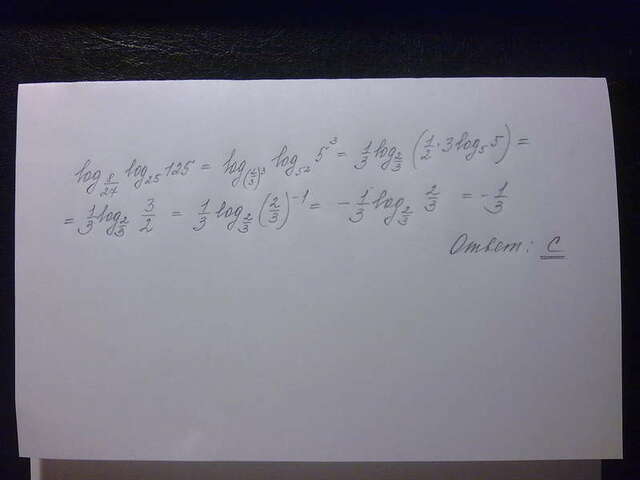 log_{8/27} log_{25} 125 = log_{(2/3)^3} log_{5^2} 5^3 = 1/3 log_{2/3} (1/2 · 3 log_5 5) =
= 1/3 log_{2/3} 3/2 = 1/3 log_{2/3} (2/3)^{-1} = - 1/3 log_{2/3} 2/3 = - 1/3
Ответ: C